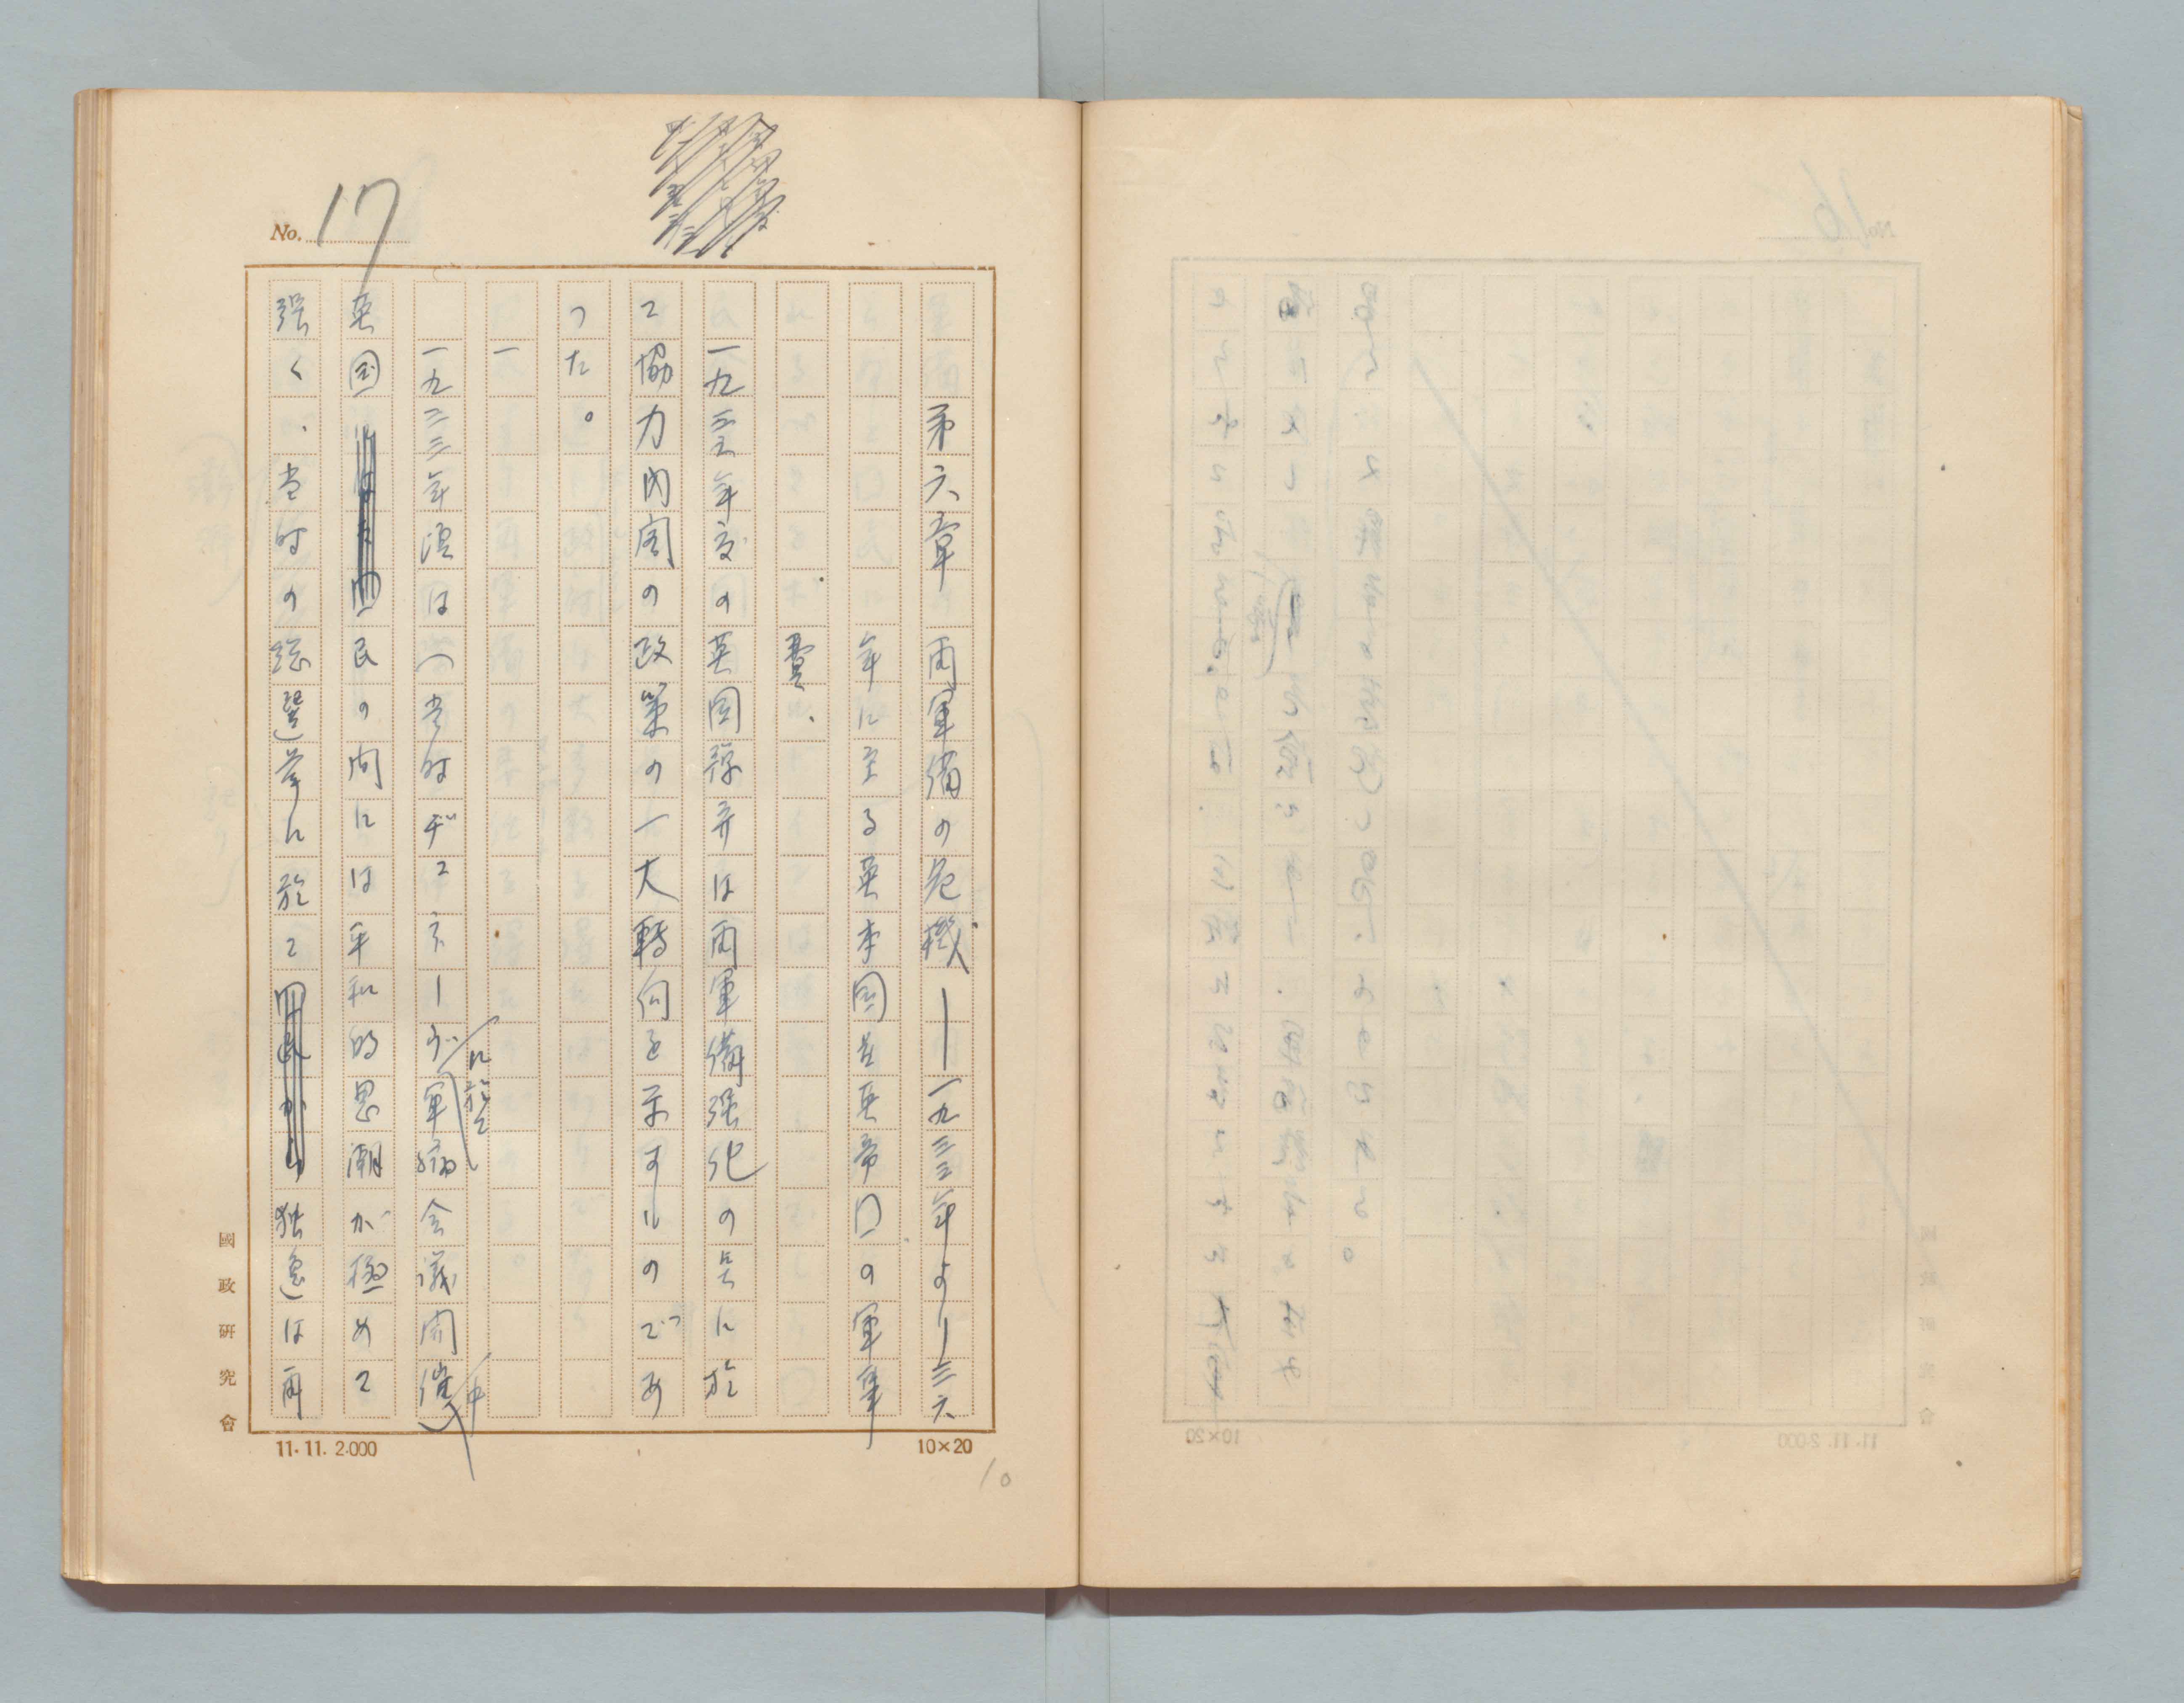 No. 17
第六章 再軍備の危機 ― 一九三三年より三六
年に至る英本国並英帝口の軍事
費
一九三五年度の英国予算は再軍備強化の点に於
て協力内閣の政策の一大転向を示すものであ
つた。
一
一九三三年頃は(当時ヂュネーヴに於て軍縮会議開催中)
英国民の間には平和的思潮が極めて
強く、当時の総選挙に於て独逸は再
國政研究會
11.11. 2.000
10×20
10